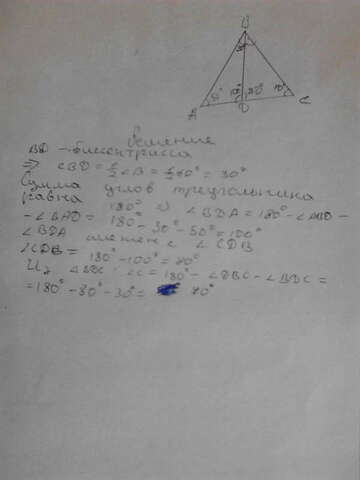 B
30°
50° 100° 80° 70°
A D C
Решение
BD - биссектрисса
=> ∠BD = 1/2 ∠B = 1/2 60° = 30°
Сумма углов треугольника
равна 180° => ∠BDA = 180° - ∠ABD -
- ∠BAD = 180° - 30° - 50° = 100°
∠BDA смежен с ∠CDB
∠CDB = 180° - 100° = 80°
Из ∠BDC: ∠C = 180° - ∠DBC - ∠BDC =
= 180° - 80° - 30° = 70°